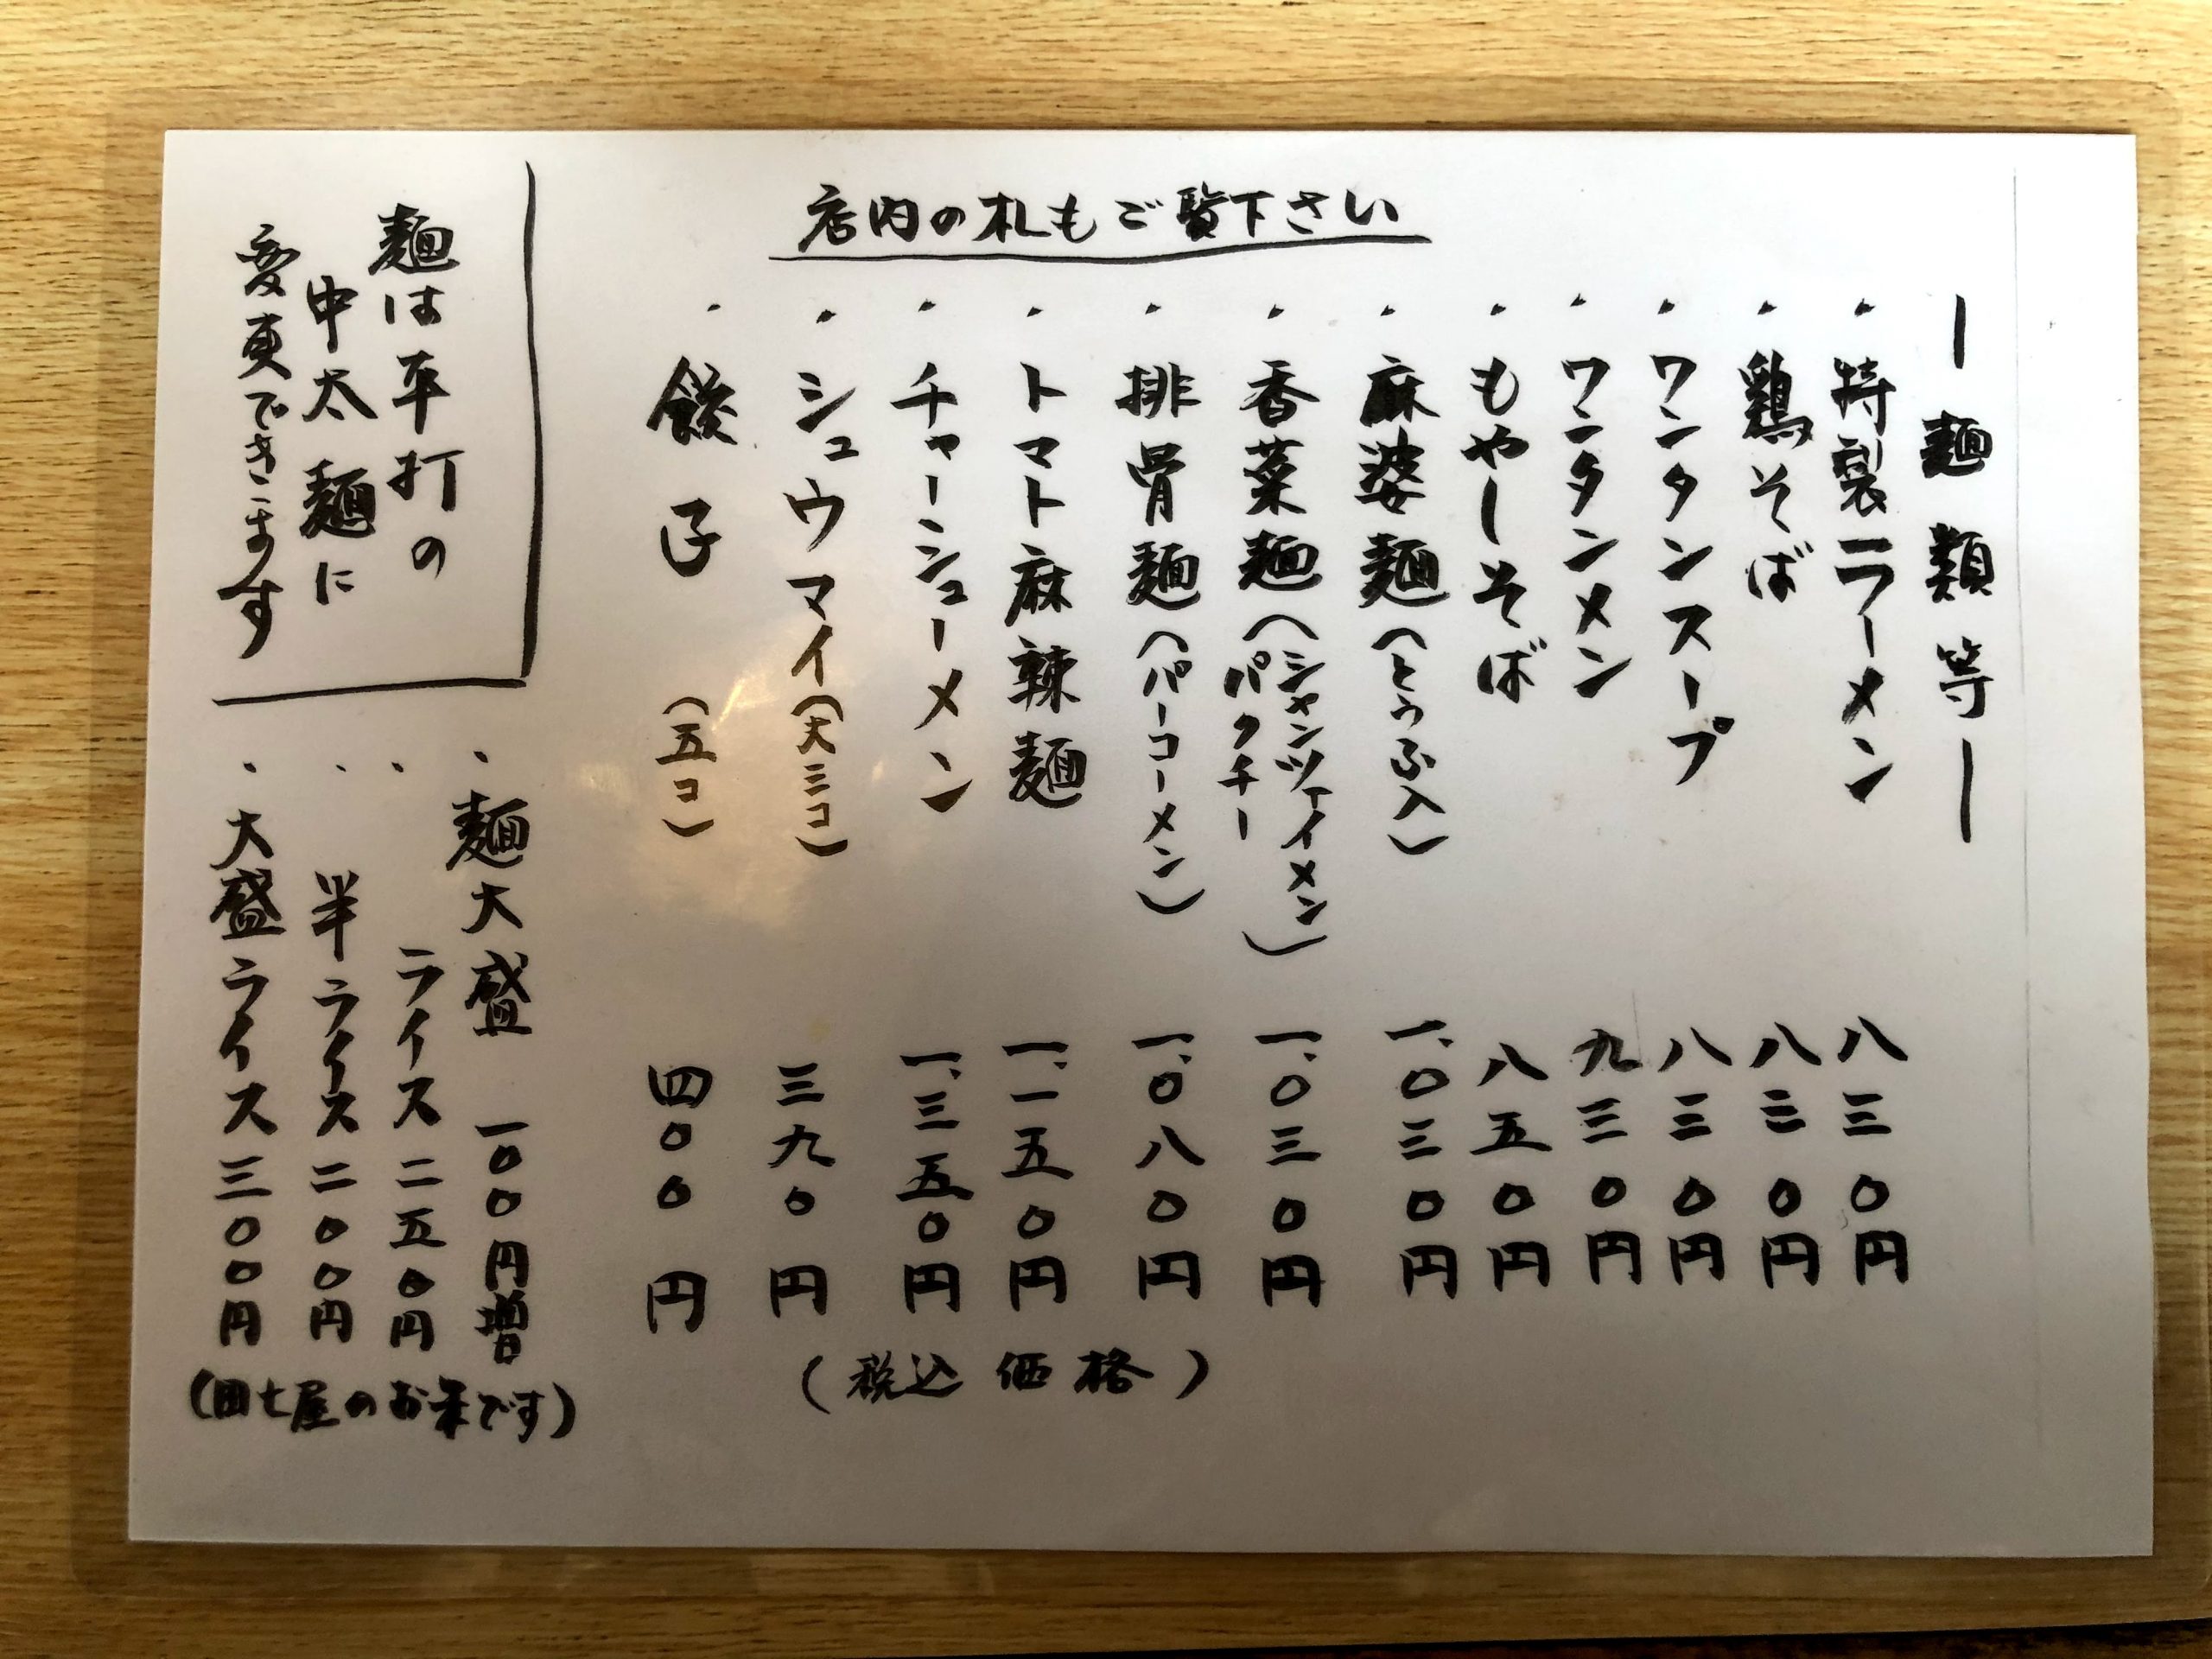 店内の札もご覧下さい
ー麺類等ー
・特製ラーメン 八三〇円
・鶏そば 八三〇円
・ワンタンスープ 八三〇円
・ワンタンメン 九三〇円
・もやしそば 八五〇円
・麻婆麺（とうふ入） 一、〇三〇円
・香菜麺（シャンツァイメン パクチー） 一、〇三〇円
・排骨麺（パーコーメン） 一、〇八〇円
・トマト麻辣麺 一、一五〇円
・チャーシューメン 一、三五〇円
・シュウマイ（大三コ） 三九〇円
・餃子（五コ） 四〇〇円
（税込価格）
麺は平打の
中太麺に
変更できます
・麺大盛 一〇〇円増
・ライス 二五〇円
・半ライス 二〇〇円
・大盛ライス 三〇〇円
（田七屋のお米です）